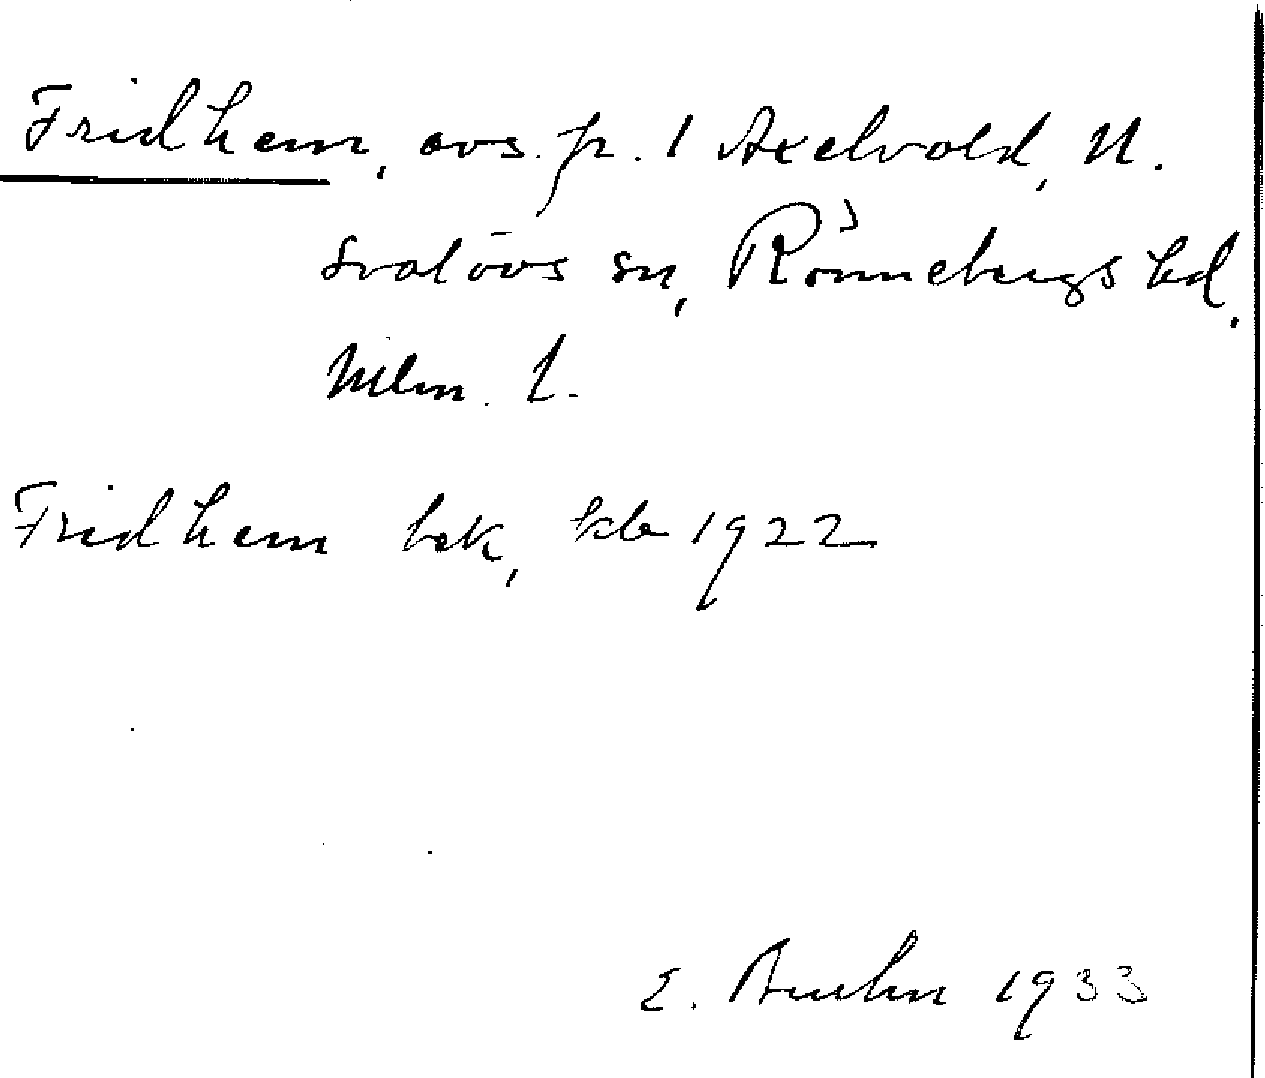 Fridhem, avs. fr. 1 Axelvold, N.
Svalövs sn, Rönnebergs hd,
Mlm. l.
Fridhem bek, kb 1922
E. Bruhn 1933